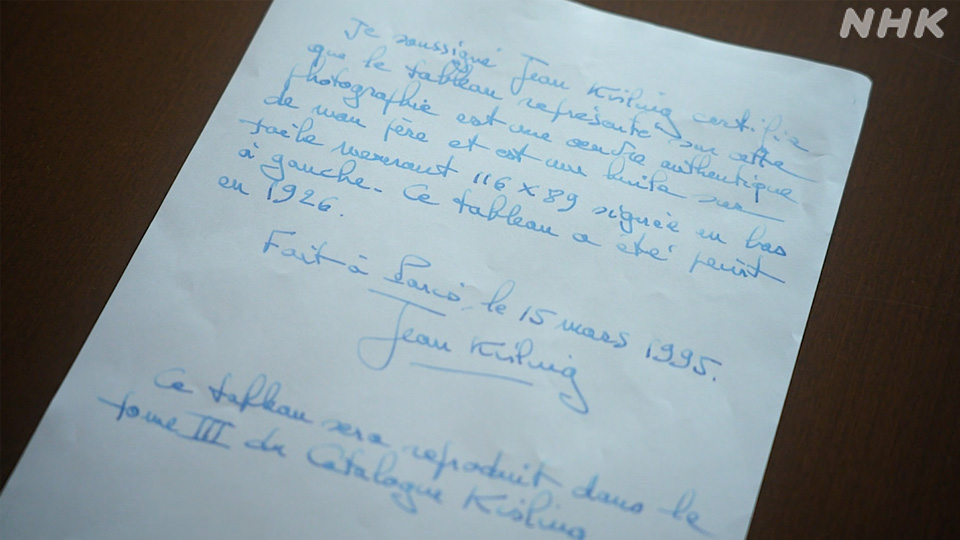 NHK
Je soussigné Jean Kisling certifie
que le tableau représenté sur cette
photographie est une oeuvre authentique
de mon père et est une huile sur
toile mesurant 116 x 89 signée en bas
à gauche - Ce tableau a été peint
en 1926.
Fait à Paris, le 15 mars 1995.
Jean Kisling
Ce tableau sera reproduit dans le
tome III du Catalogue Kisling